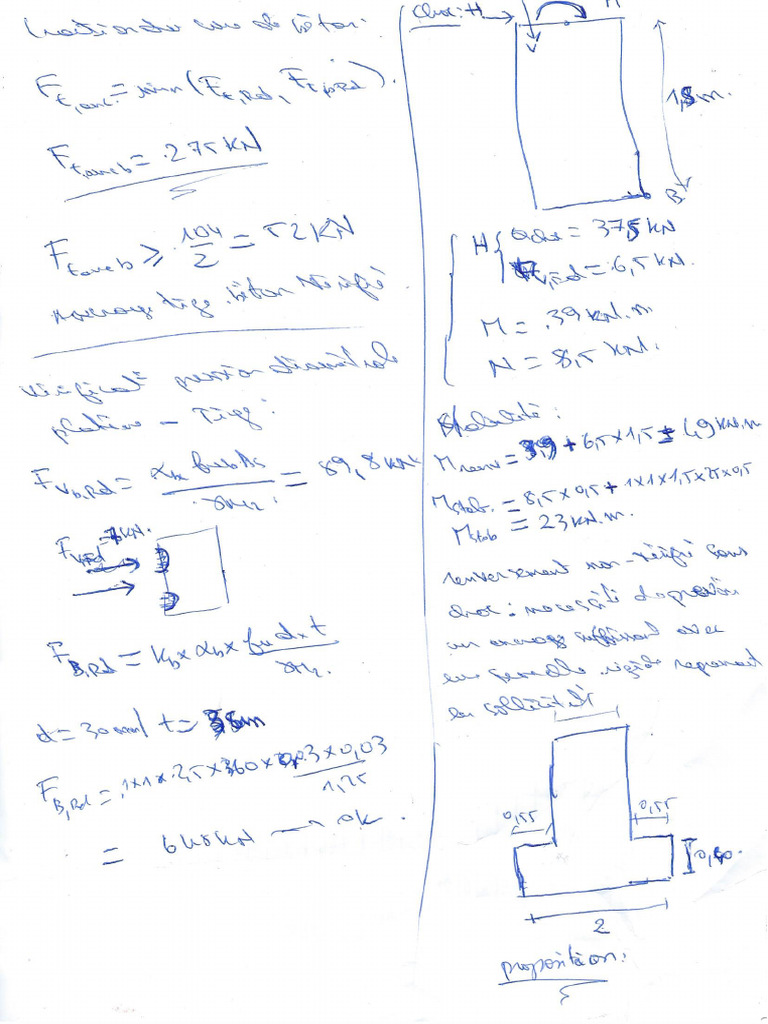 de béton.
F t,anc = min (F t,Rd, F t,b,Rd).
F t,anc b = 275 kN
F t,anc b ≥ 104/2 = 52 kN
ancrage tige béton vérifié.
vérificat° pression diamétrale
platine – Tige:
F vb,Rd = αb fub As / γM2 = 89,8 kN
F v,Rd
F B,Rd = Kb × αb × fu d × t / γM2.
d = 30 mm / t =
F B,Rd = 1×1×2,5×360× 0,03×0,03 / 1,25
= 648 kN → ok.
Choc: H
M
1,5 m.
B
H { = 37,5 kN
v,Ed = 6,5 kN.
M = 39 kN.m
N = 8,5 kN.
Stabilité:
M renv = 39 + 6,5×1,5 = 49 kN.m
M stab. = 8,5×0,5 + 1×1×1,5×25×0,5
M stab = 23 kN.m.
renversement non-vérifié sous
choc: nécessité de prévoir
un ancrage suffisant avec
une semelle rigide reprenant
la sollicitat°
0,55
0,55
2
proposition: